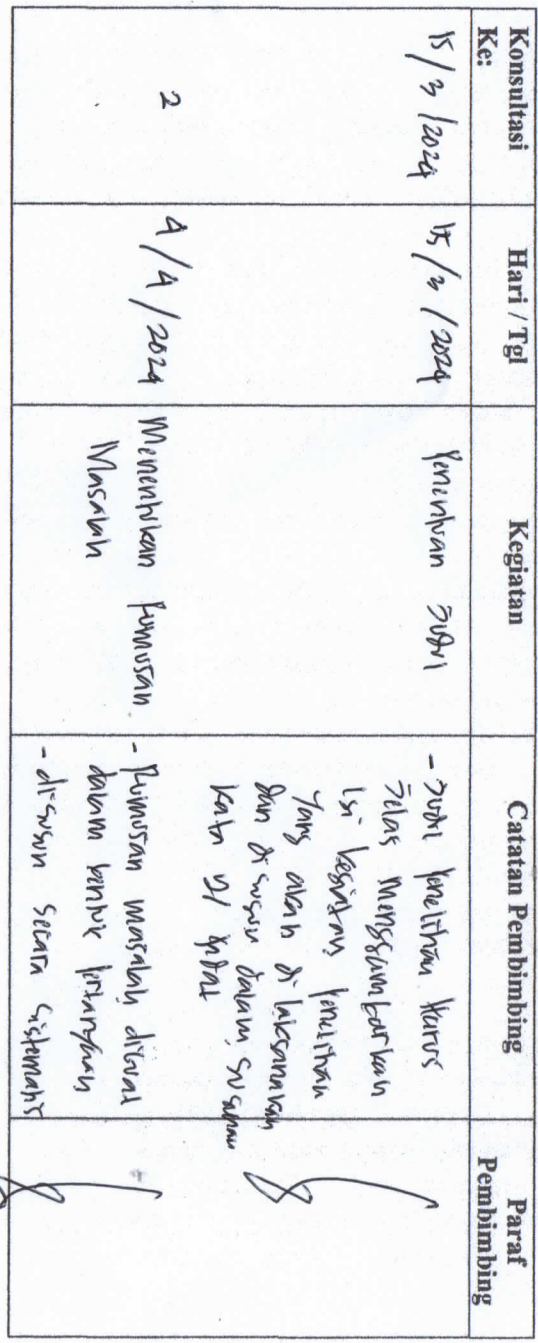 Konsultasi Ke:
Hari / Tgl
Kegiatan
Catatan Pembimbing
Paraf Pembimbing
15/3/2024
15/3/2024
Penentuan Judul
- Judul Penelitian Harus
Jelas Menggambarkan
Isi kegiatan Penelitian
Yang akan di laksanakan
dan di susun dalam susunan
kata
2
4/4/2024
Menentukan Rumusan
Masalah
- Rumusan masalah dibuat
dalam bentuk Pertanyaan
- di susun secara sistematis